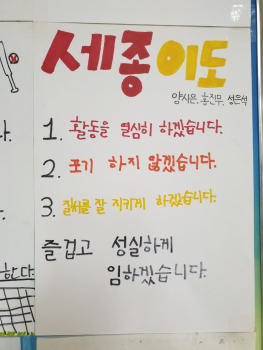 세종이도
양시은, 홍진무, 성은석
1. 활동을 열심히 하겠습니다.
2. 포기 하지 않겠습니다.
3. 질서를 잘 지키게 하겠습니다.
즐겁고 성실하게
임하겠습니다.